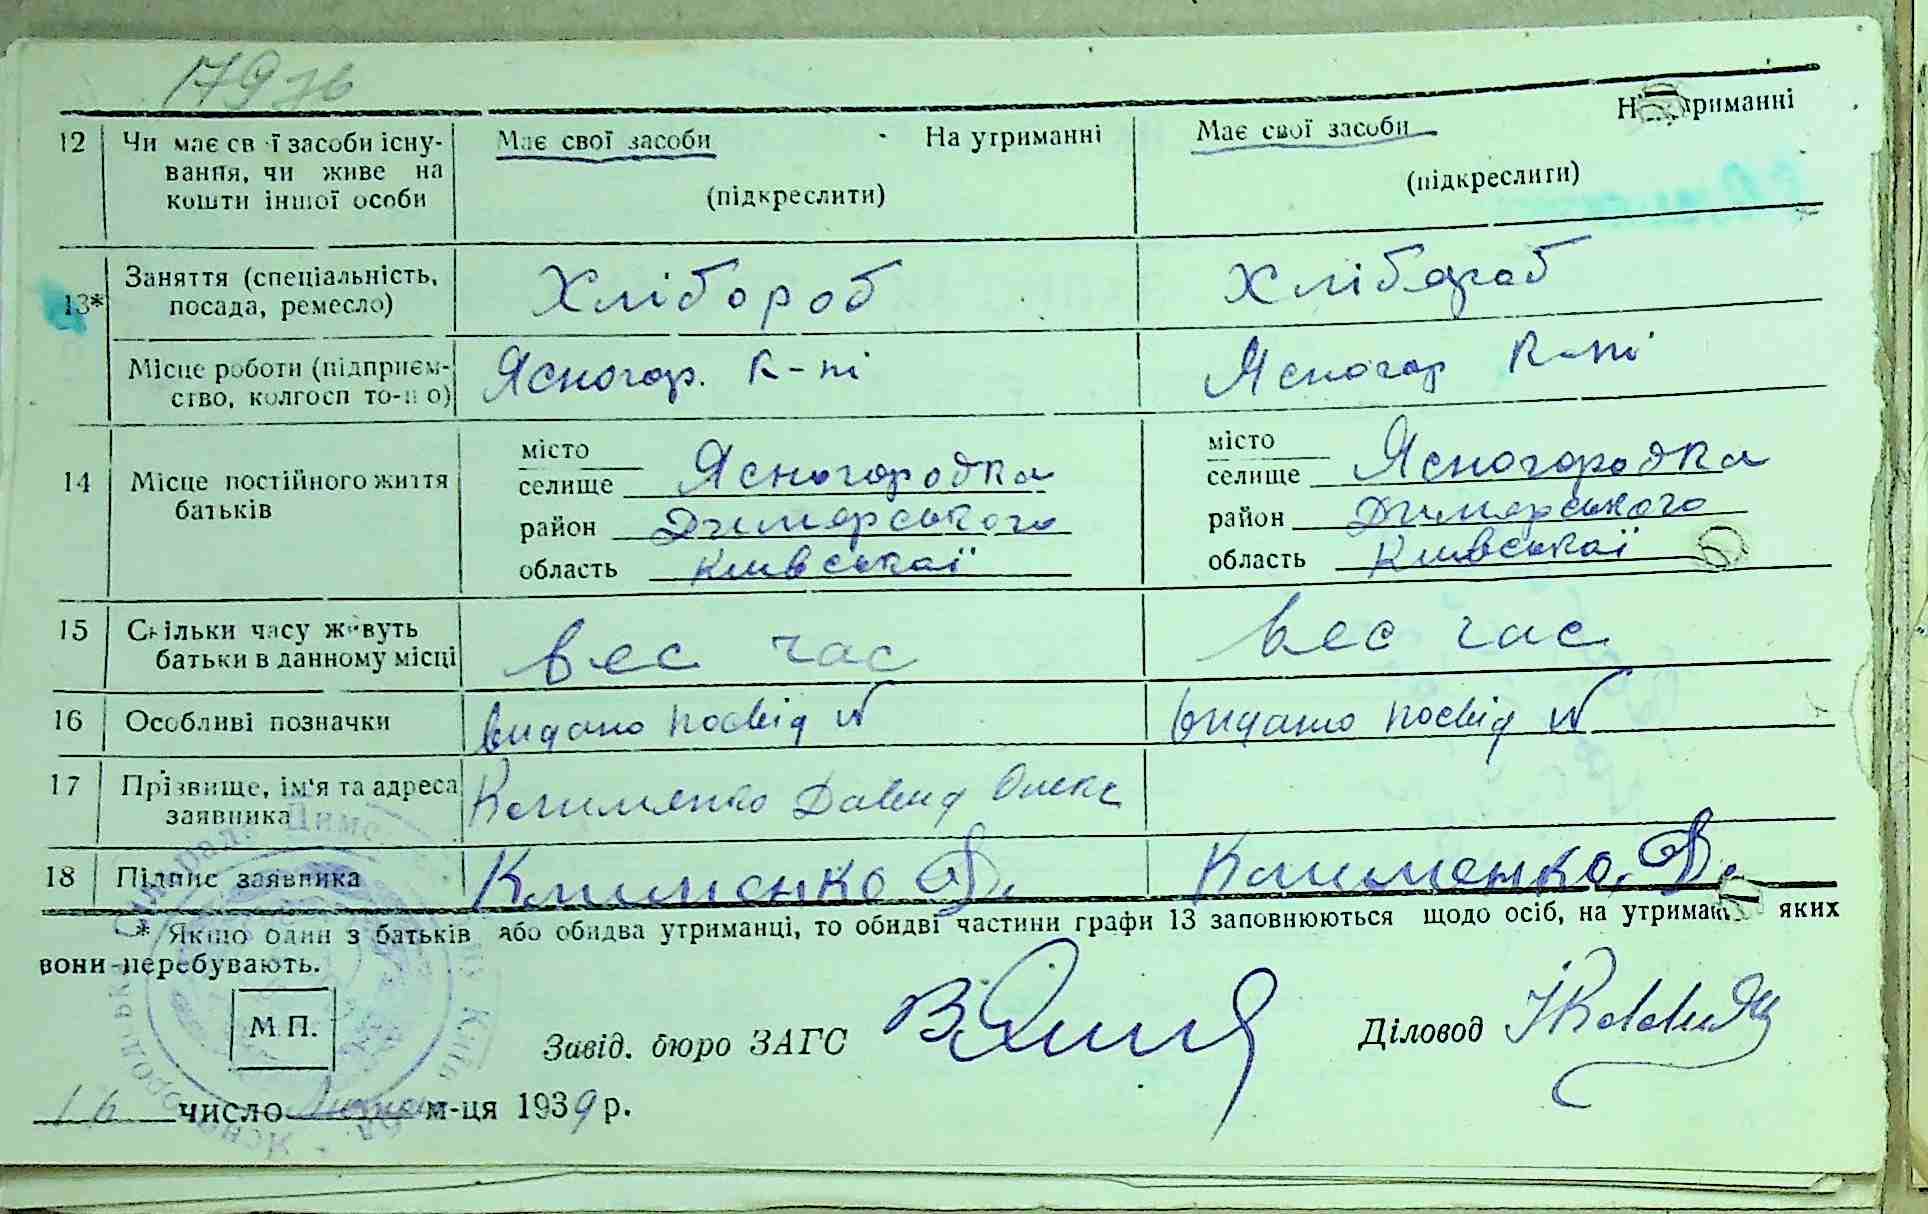 179 зв
12 Чи має св ї засоби існу- Має свої засоби На утриманні Має свої засоби
вання, чи живе на
кошти іншої особи (підкреслити) (підкреслити)
13* Заняття (спеціальність, Хлібороб Хлібороб
посада, ремесло)
Місце роботи (підприєм- Ясногор. к-пі Ясногор к-пі
ство, колгосп то-що)
14 Місце постійного життя місто місто
батьків селище Ясногородка селище Ясногородка
район Димерського район Димерського
область Київської область Київської
15 Скільки часу живуть вес час вес час
батьки в данному місці
16 Особливі позначки видано посвід № видано посвід №
17 Прізвище, ім'я та адреса Клименко Давид Олекс
заявника
18 Підпис заявника Клименко Д. Клименко Д.
* Якщо один з батьків або обидва утриманці, то обидві частини графи 13 заповнюються щодо осіб, на утриманні яких
вони перебувають.
М П.
Завід. бюро ЗАГС Діловод
16 число м-ця 1939 р.